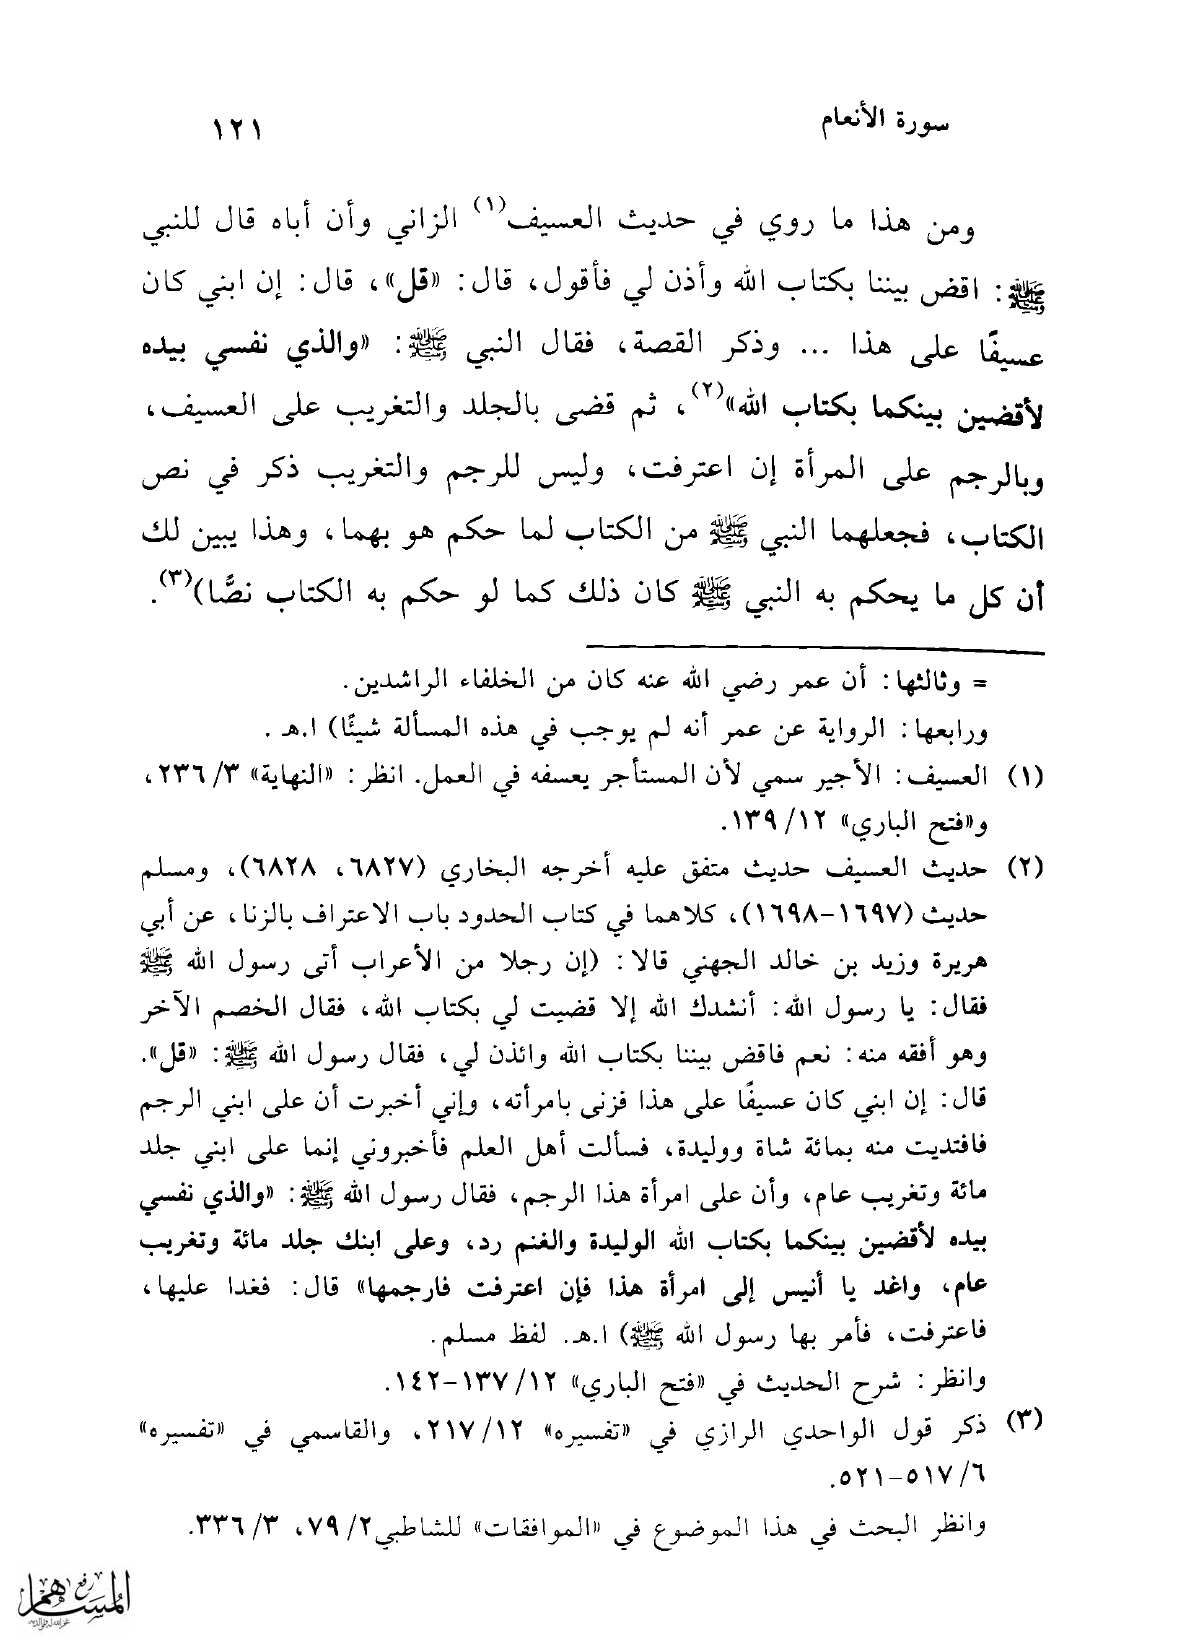 سورة الأنعام ١٢١
ومن هذا ما روي في حديث العسيف(١) الزاني وأن أباه قال للنبي
ﷺ: اقض بيننا بكتاب الله وأذن لي فأقول، قال: «قل»، قال: إن ابني كان
عسيفًا على هذا ... وذكر القصة، فقال النبي ﷺ: «والذي نفسي بيده
لأقضين بينكما بكتاب الله»(٢)، ثم قضى بالجلد والتغريب على العسيف،
وبالرجم على المرأة إن اعترفت، وليس للرجم والتغريب ذكر في نص
الكتاب، فجعلهما النبي ﷺ من الكتاب لما حكم هو بهما، وهذا يبين لك
أن كل ما يحكم به النبي ﷺ كان ذلك كما لو حكم به الكتاب نصًّا)(٣).
= وثالثها: أن عمر رضي الله عنه كان من الخلفاء الراشدين.
ورابعها: الرواية عن عمر أنه لم يوجب في هذه المسألة شيئًا) ا.هـ .
(١) العسيف: الأجير سمي لأن المستأجر يعسفه في العمل. انظر: «النهاية» ٣/ ٢٣٦،
و«فتح الباري» ١٢/ ١٣٩.
(٢) حديث العسيف حديث متفق عليه أخرجه البخاري (٦٨٢٧، ٦٨٢٨)، ومسلم
حديث (١٦٩٧-١٦٩٨)، كلاهما في كتاب الحدود باب الاعتراف بالزنا، عن أبي
هريرة وزيد بن خالد الجهني قالا: (إن رجلا من الأعراب أتى رسول الله ﷺ
فقال: يا رسول الله: أنشدك الله إلا قضيت لي بكتاب الله، فقال الخصم الآخر
وهو أفقه منه: نعم فاقض بيننا بكتاب الله وائذن لي، فقال رسول الله ﷺ: «قل».
قال: إن ابني كان عسيفًا على هذا فزنى بامرأته، وإني أخبرت أن على ابني الرجم
فافتديت منه بمائة شاة ووليدة، فسألت أهل العلم فأخبروني إنما على ابني جلد
مائة وتغريب عام، وأن على امرأة هذا الرجم، فقال رسول الله ﷺ: «والذي نفسي
بيده لأقضين بينكما بكتاب الله الوليدة والغنم رد، وعلى ابنك جلد مائة وتغريب
عام، واغد يا أنيس إلى امرأة هذا فإن اعترفت فارجمها» قال: فغدا عليها،
فاعترفت، فأمر بها رسول الله ﷺ) ا.هـ. لفظ مسلم.
وانظر: شرح الحديث في «فتح الباري» ١٢/ ١٣٧-١٤٢.
(٣) ذكر قول الواحدي الرازي في «تفسيره» ١٢/ ٢١٧، والقاسمي في «تفسيره»
٦/ ٥١٧-٥٢١.
وانظر البحث في هذا الموضوع في «الموافقات» للشاطبي٢/ ٧٩، ٣/ ٣٣٦.